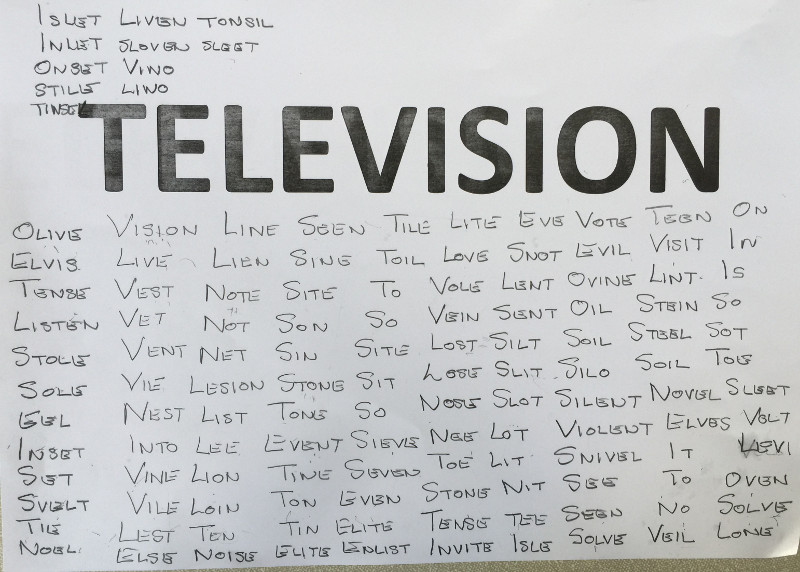 ISLET LIVEN TONSIL
INLET SLOVEN SLEET
ONSET VINO
STILE LINO
TINSEL
TELEVISION
OLIVE VISION LINE SEEN TILE LITE EVE VOTE TEEN ON
ELVIS LIVE LIEN SINE TOIL LOVE SNOT EVIL VISIT IN
TENSE VEST NOTE SITE TO VOLE LENT OVINE LINT. IS
LISTEN VET NOT SON SO VEIN SENT OIL STEIN SO
STOLE VENT NET SIN SITE LOST SILT SOIL STEEL SOT
SOLE VIE LESION STONE SIT LOSE SLIT SILO SOIL TOE
EEL NEST LIST TONE SO NOSE SLOT SILENT NOVEL SLEET
INSET INTO LEE EVENT SIEVE NEE LOT VIOLENT ELVES VOLT
SET VINE LION TINE SEVEN TOE LIT SNIVEL IT LEVI
SVELT VILE LOIN TON EVEN STONE NIT SEE TO OVEN
TIE LEST TEN TIN ELITE TENSE TEE SEEN NO SOLVE
NOEL. ELSE NOISE ELITE ENLIST INVITE ISLE SOLVE VEIL LONE